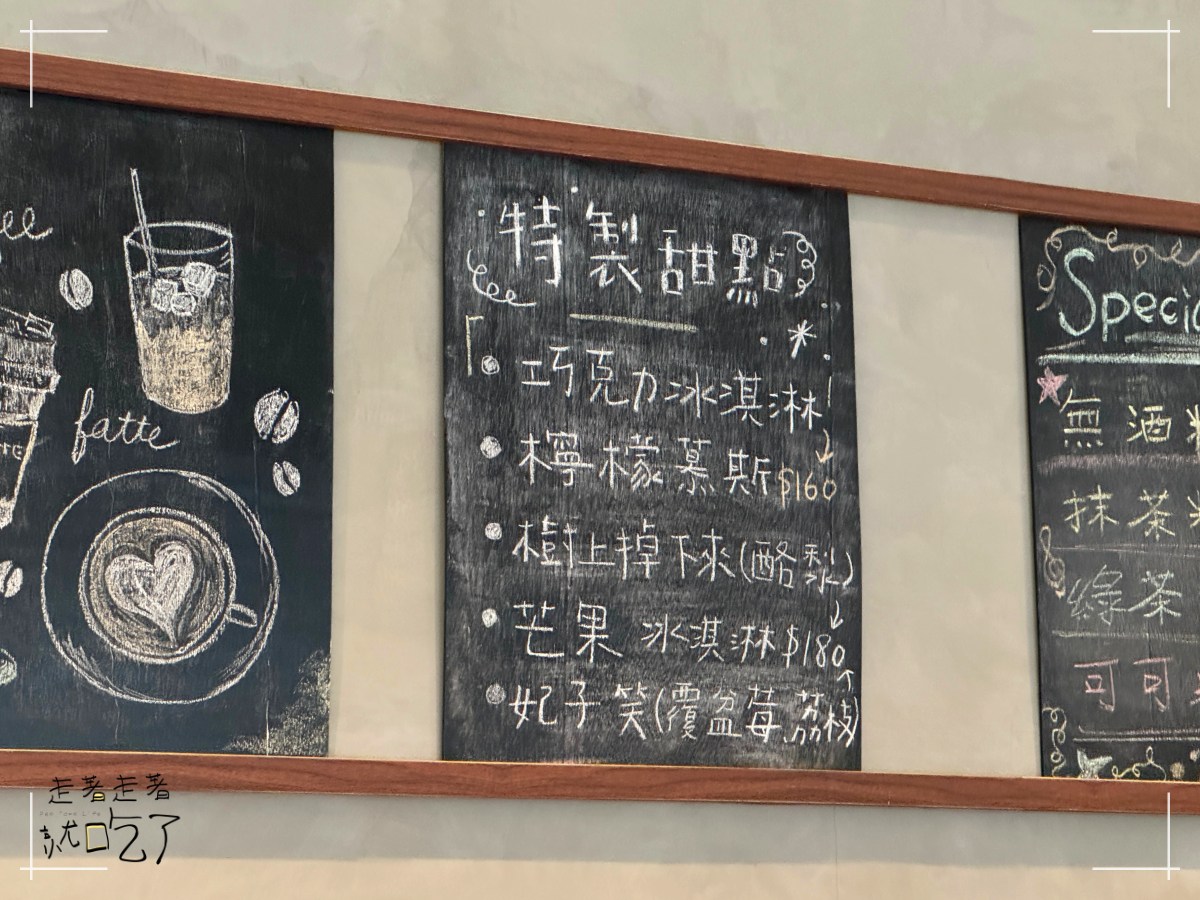 fatte
特製甜點
巧克力冰淇淋
檸檬慕斯$160
樹上掉下來(酪梨)
芒果 冰淇淋$180
妃子笑(覆盆莓.荔枝)
無酒
抹茶
綠茶
可可
走著走著
就吃了